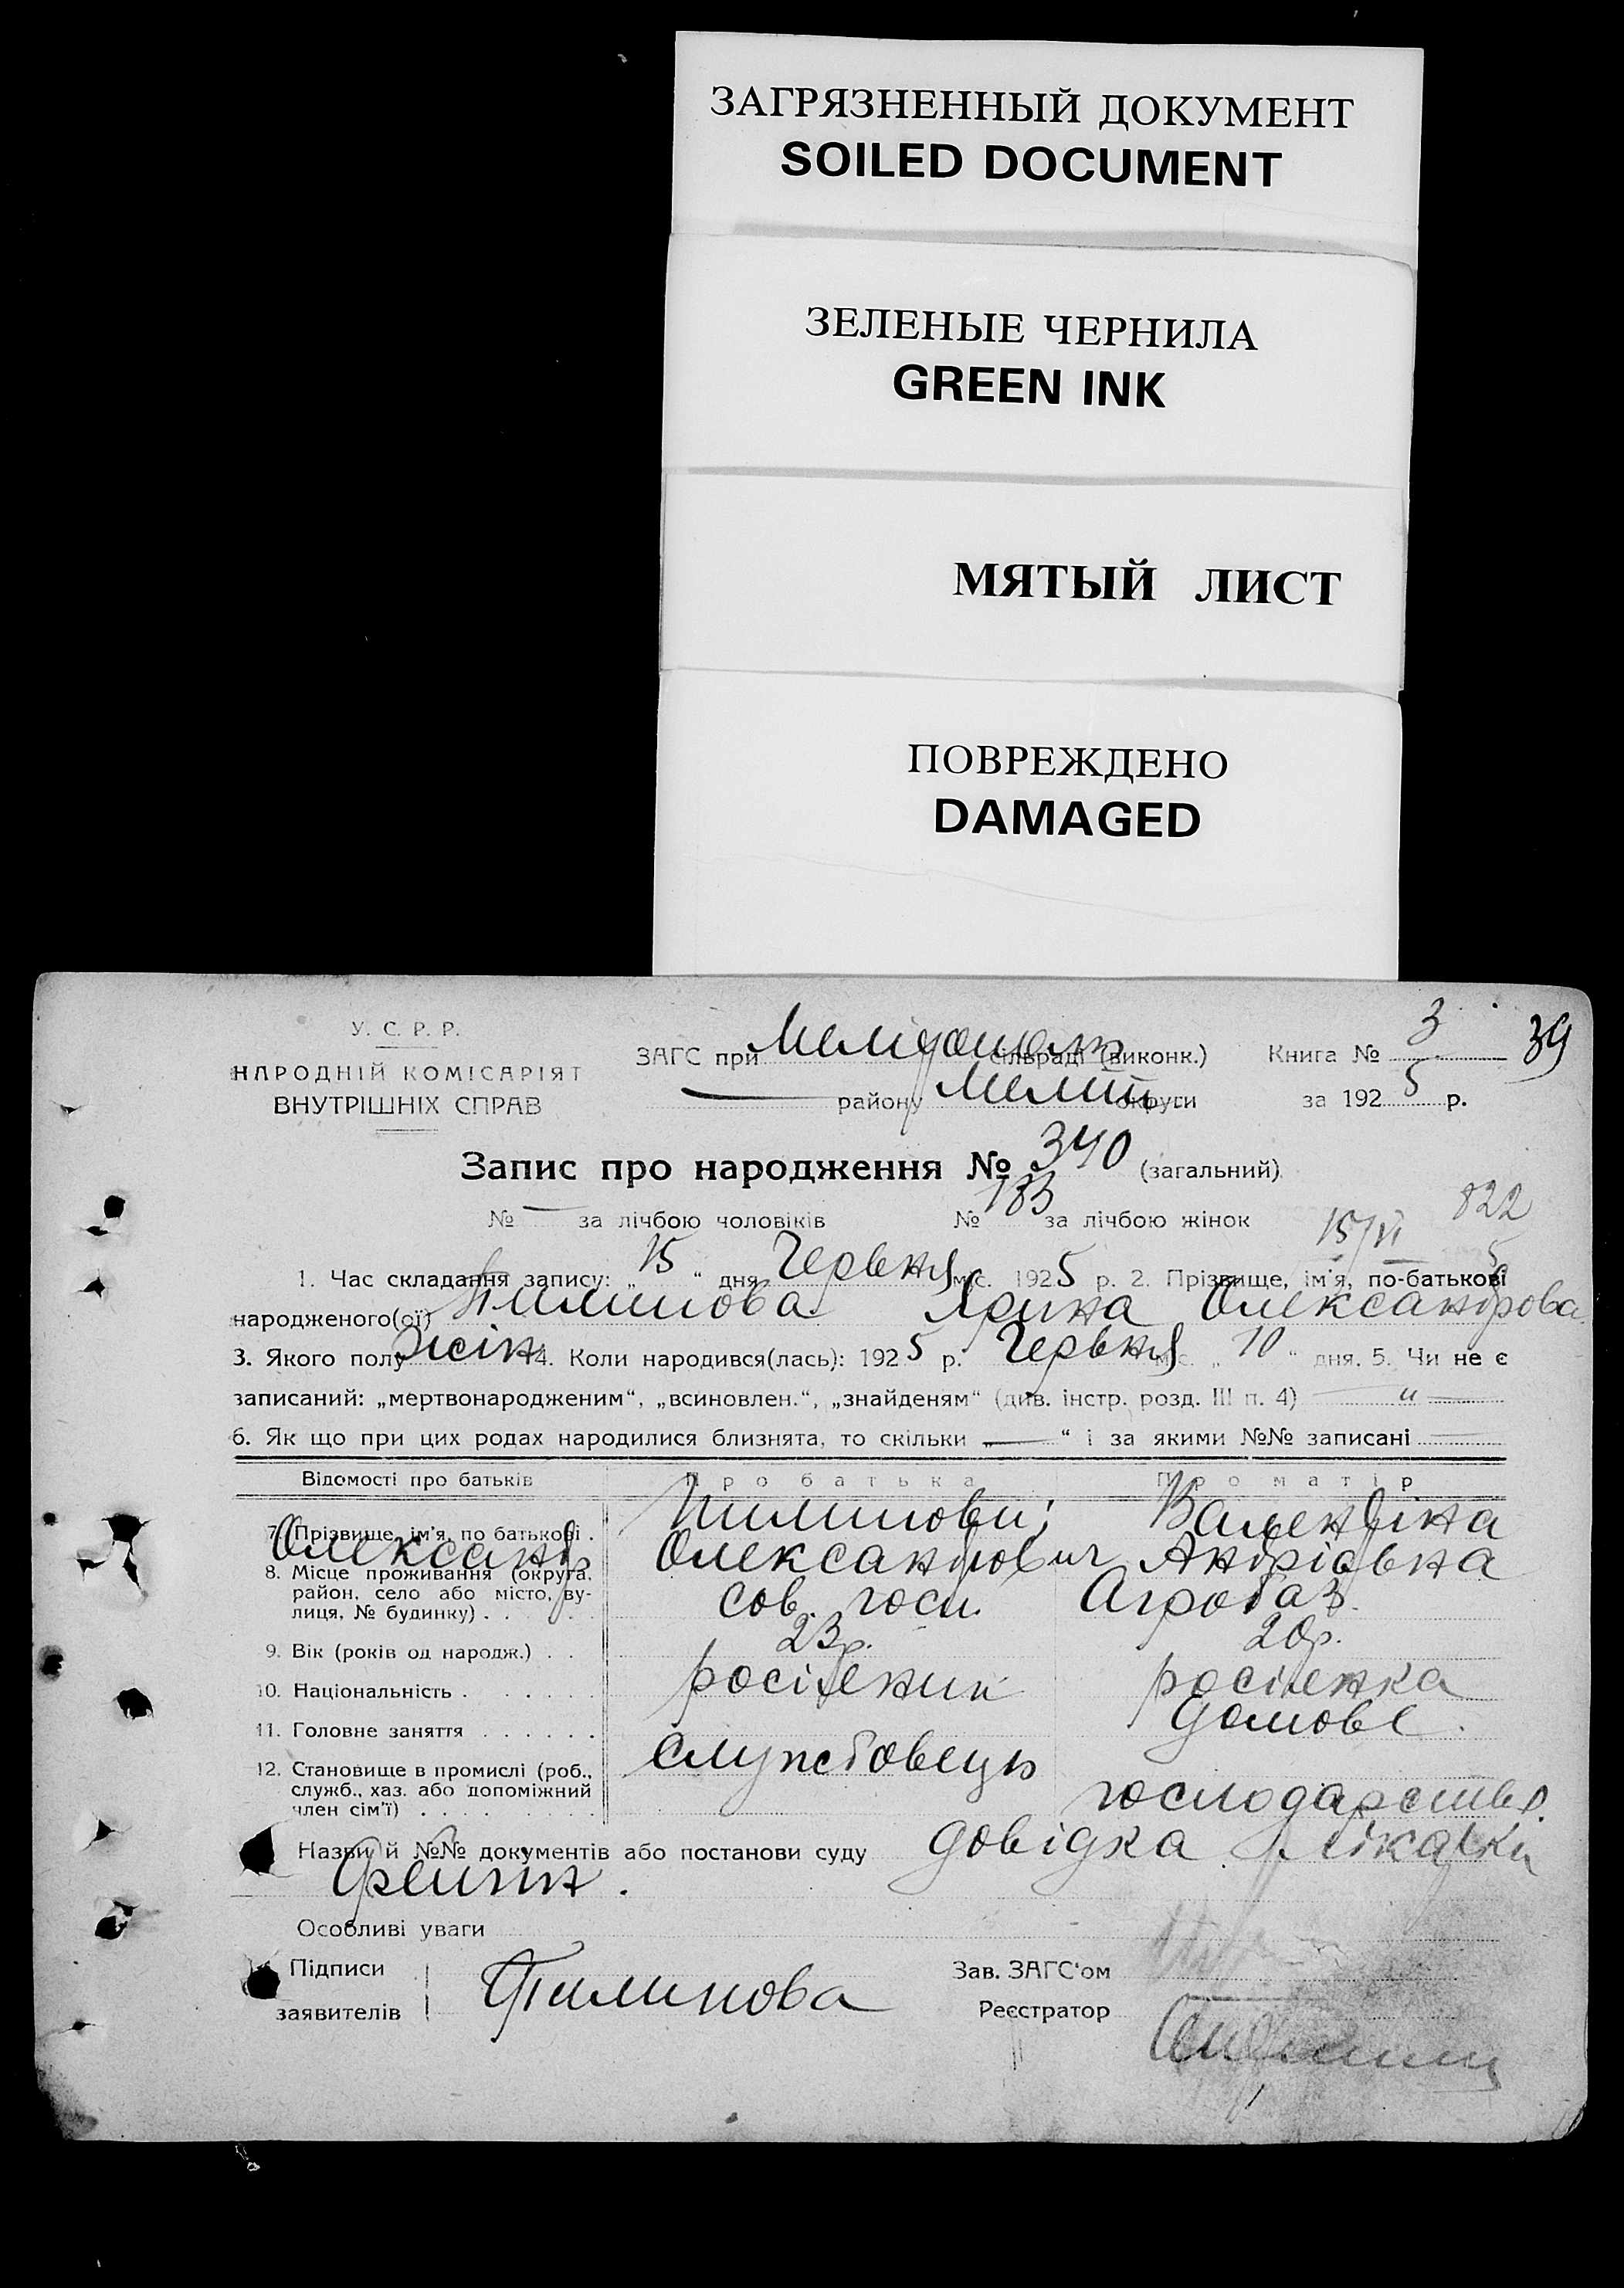 ЗАГРЯЗНЕННЫЙ ДОКУМЕНТ
SOILED DOCUMENT
ЗЕЛЕНЫЕ ЧЕРНИЛА
GREEN INK
МЯТЫЙ ЛИСТ
ПОВРЕЖДЕНО
DAMAGED
У. С. Р. Р.
НАРОДНІЙ КОМІСАРІЯТ
ВНУТРІШНІХ СПРАВ
ЗАГС при сільраді (виконк.) Книга № 3 39
— району Меліт. округи за 1925 р.
Запис про народження № 340 (загальний)
№ — за лічбою чоловіків № 183 за лічбою жінок 15/VI 822
1. Час складання запису: „15“ дня Червня міс. 1925 р. 2. Прізвище, ім'я, по-батькові
народженого(ої) Ярина Олександрова
3. Якого полу жін 4. Коли народився(лась): 1925 р. Червня міс. „10“ дня. 5. Чи не є
записаний: „мертвонародженим“, „всиновлен.“, „знайденям“ (див. інстр. розд. III п. 4) — „ —
6. Як що при цих родах народилися близнята, то скільки „—“ і за якими №№ записані —
Відомості про батьків Про батька Про матір
7. Прізвище, ім'я, по батькові . Валентіна
Олександр Олександрович Андріівна
8. Місце проживання (округа, район, село або місто, вулиця, № будинку) . . сов. госп. Агробаз.
9. Вік (років од народж.) . . 23 р. 20 р.
10. Національність . . . . . . . росіянин росіянка
11. Головне заняття . . . . . . службовець домове
12. Становище в промислі (роб., служб., хаз. або допоміжний член сім'ї) . . . . господарство.
Назви й №№ документів або постанови суду довідка лікарки
Особливі уваги
Підписи
заявителів
Зав. ЗАГС'ом
Реєстратор